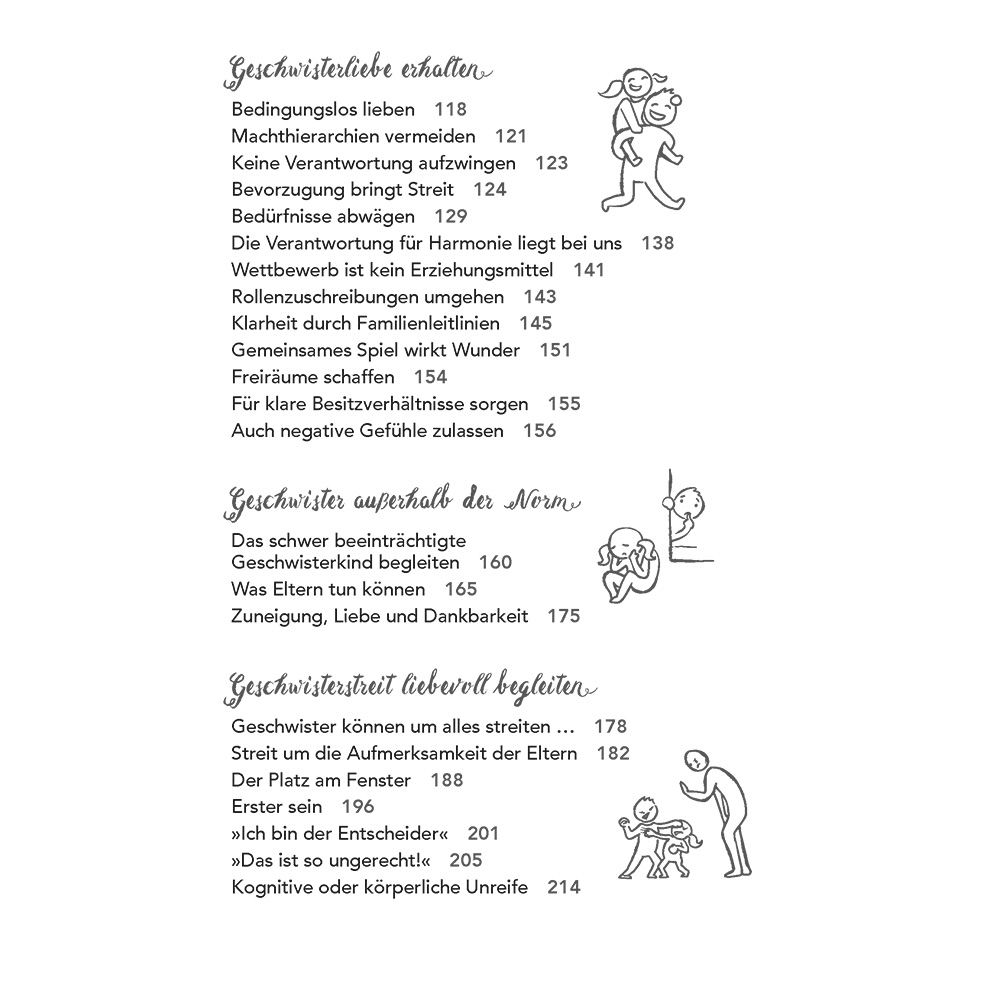 Geschwisterliebe erhalten
Bedingungslos lieben 118
Machthierarchien vermeiden 121
Keine Verantwortung aufzwingen 123
Bevorzugung bringt Streit 124
Bedürfnisse abwägen 129
Die Verantwortung für Harmonie liegt bei uns 138
Wettbewerb ist kein Erziehungsmittel 141
Rollenzuschreibungen umgehen 143
Klarheit durch Familienleitlinien 145
Gemeinsames Spiel wirkt Wunder 151
Freiräume schaffen 154
Für klare Besitzverhältnisse sorgen 155
Auch negative Gefühle zulassen 156
Geschwister außerhalb der Norm
Das schwer beeinträchtigte
Geschwisterkind begleiten 160
Was Eltern tun können 165
Zuneigung, Liebe und Dankbarkeit 175
Geschwisterstreit liebevoll begleiten
Geschwister können um alles streiten … 178
Streit um die Aufmerksamkeit der Eltern 182
Der Platz am Fenster 188
Erster sein 196
»Ich bin der Entscheider« 201
»Das ist so ungerecht!« 205
Kognitive oder körperliche Unreife 214